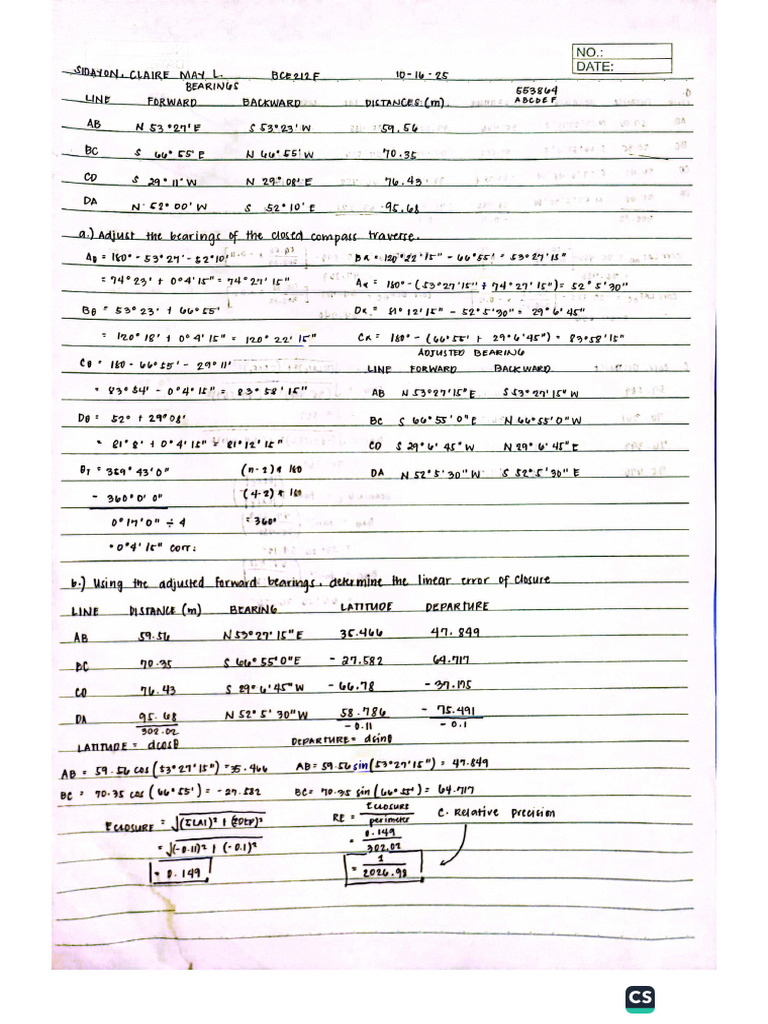 NO.:
DATE:
SIDAYON, CLAIRE MAY L. BCE212F 10-16-25
BEARINGS 553864
LINE FORWARD BACKWARD DISTANCES (m) ABCDEF
AB N 53°27'E S 53°23'W 59.56
BC S 66°55'E N 66°55'W 70.35
CD S 29°11'W N 29°08'E 76.43
DA N 52°00'W S 52°10'E 95.68
a.) Adjust the bearings of the closed compass traverse.
Aθ = 180° - 53°27' - 52°10' Bα = 120°22'15" - 66°55' = 53°27'15"
= 74°23' + 0°4'15" = 74°27'15" Aα = 180° - (53°27'15" + 74°27'15") = 52°5'30"
Bθ = 53°23' + 66°55' Dα = 81°12'15" - 52°5'30" = 29°6'45"
= 120°18' + 0°4'15" = 120°22'15" Cα = 180° - (66°55' + 29°6'45") = 83°58'15"
ADJUSTED BEARING
Cθ = 180 - 66°55' - 29°11' LINE FORWARD BACKWARD
= 83°54' - 0°4'15" = 83°58'15" AB N 53°27'15"E S 53°27'15"W
Dθ = 52° + 29°08' BC S 66°55'0"E N 66°55'0"W
= 81°8' + 0°4'15" = 81°12'15" CD S 29°6'45"W N 29°6'45"E
θT = 359°43'0" (n-2) * 180 DA N 52°5'30"W S 52°5'30"E
- 360°0'0" (4-2) * 180
0°17'0" ÷ 4 = 360°
• 0°4'15" corr:
b.) Using the adjusted forward bearings, determine the linear error of closure
LINE DISTANCE (m) BEARING LATITUDE DEPARTURE
AB 59.56 N 53°27'15"E 35.466 47.849
BC 70.35 S 66°55'0"E - 27.582 64.717
CD 76.43 S 29°6'45"W - 66.78 - 37.175
DA 95.68 N 52°5'30"W 58.786 - 75.491
302.02 - 0.11 - 0.1
LATITUDE = dcosθ DEPARTURE = dsinθ
AB = 59.56 cos (53°27'15") = 35.466 AB = 59.56 sin (53°27'15") = 47.849
BC = 70.35 cos (66°55') = -27.582 BC = 70.35 sin (66°55') = 64.717
E CLOSURE = √(ΣLAT)² + (ΣDEP)² RE = E CLOSURE / perimeter C. Relative Precision
= √(-0.11)² + (-0.1)² = 0.149 / 302.02
= 0.149 = 1 / 2026.98
CS